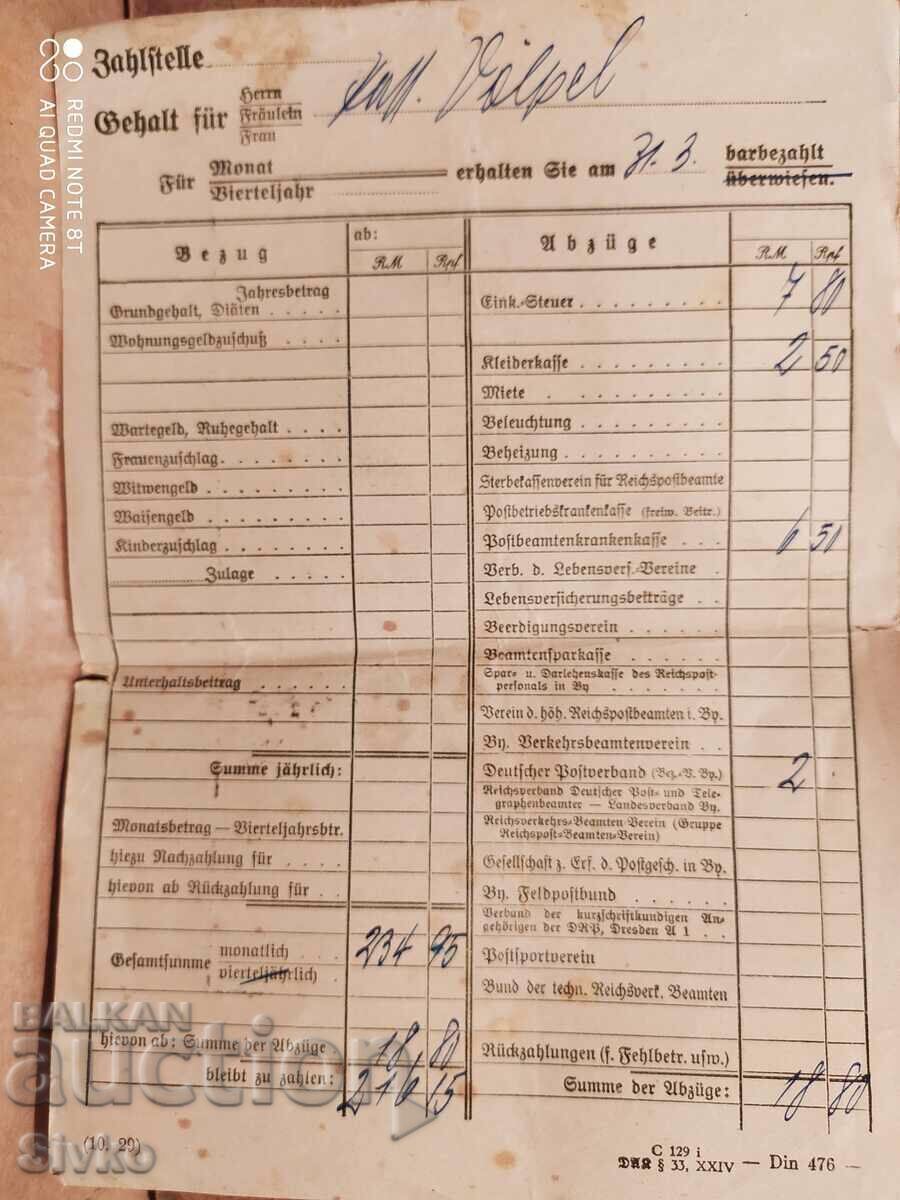 REDMI NOTE 8T
AI QUAD CAMERA
Zahlstelle
Gehalt für Herrn Fräulein Frau Völpel
Für Monat Vierteljahr erhalten Sie am 31. 3. barbezahlt überwiesen.
Bezug
ab:
RM Rpf
Jahresbetrag
Grundgehalt, Diäten . . . . .
Wohnungsgeldzuschuß . . . .
Wartegeld, Ruhegehalt . . . .
Frauenzuschlag. . . . . . . .
Witwengeld . . . . . . . . .
Waisengeld . . . . . . . . .
Kinderzuschlag . . . . . . . .
Zulage . . . . .
Unterhaltsbeitrag . . . . . .
Summe jährlich:
Monatsbetrag — Vierteljahrsbtr.
hiezu Nachzahlung für . . . .
hievon ab Rückzahlung für . .
Gesamtsumme monatlich vierteljährlich . 234 95
hievon ab: Summe der Abzüge 18 80
bleibt zu zahlen: 216 15
Abzüge
RM Rpf
Eink.-Steuer . . . . . . . . . 7 80
Kleiderkasse . . . . . . . . . 2 50
Miete . . . . . . . . . . .
Beleuchtung . . . . . . . . .
Beheizung . . . . . . . . . .
Sterbekassenverein für Reichspostbeamte
Postbetriebskrankenkasse (freiw. Beitr.)
Postbeamtenkrankenkasse . . . 6 50
Verb. d. Lebensvers.-Vereine .
Lebensversicherungsbeiträge . .
Beerdigungsverein . . . . . .
Beamtensparkasse . . . . . . .
Spar- u. Darlehenskasse des Reichspost-
personals in By . . . . . . .
Verein d. höh. Reichspostbeamten i. By.
By. Verkehrsbeamtenverein . .
Deutscher Postverband (Bez.-V. By.) 2
Reichsverband Deutscher Post- und Tele-
graphenbeamter — Landesverband By.
Reichsverkehrs-Beamten-Verein (Gruppe
Reichspost-Beamten-Verein)
Gesellschaft z. Erf. d. Postgesch. in By.
By. Feldpostbund . . . . . .
Verband der kurzschriftkundigen An-
gehörigen der DRP, Dresden A 1 . .
Postsportverein
Bund der techn. Reichsverk. Beamten
Rückzahlungen (f. Fehlbetr. usw.)
Summe der Abzüge: 18 80
BALKAN
auction
Sivko
(10. 29)
C 129 i
DAR § 33, XXIV — Din 476 —